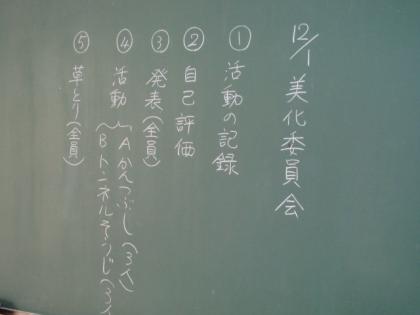 12/1 美化委員会
① 活動の記録
② 自己評価
③ 発表(全員)
④ 活動 〈Aかんつぶし(3人)
〈Bトンネルそうじ(3人
⑤ 草とり(全員)